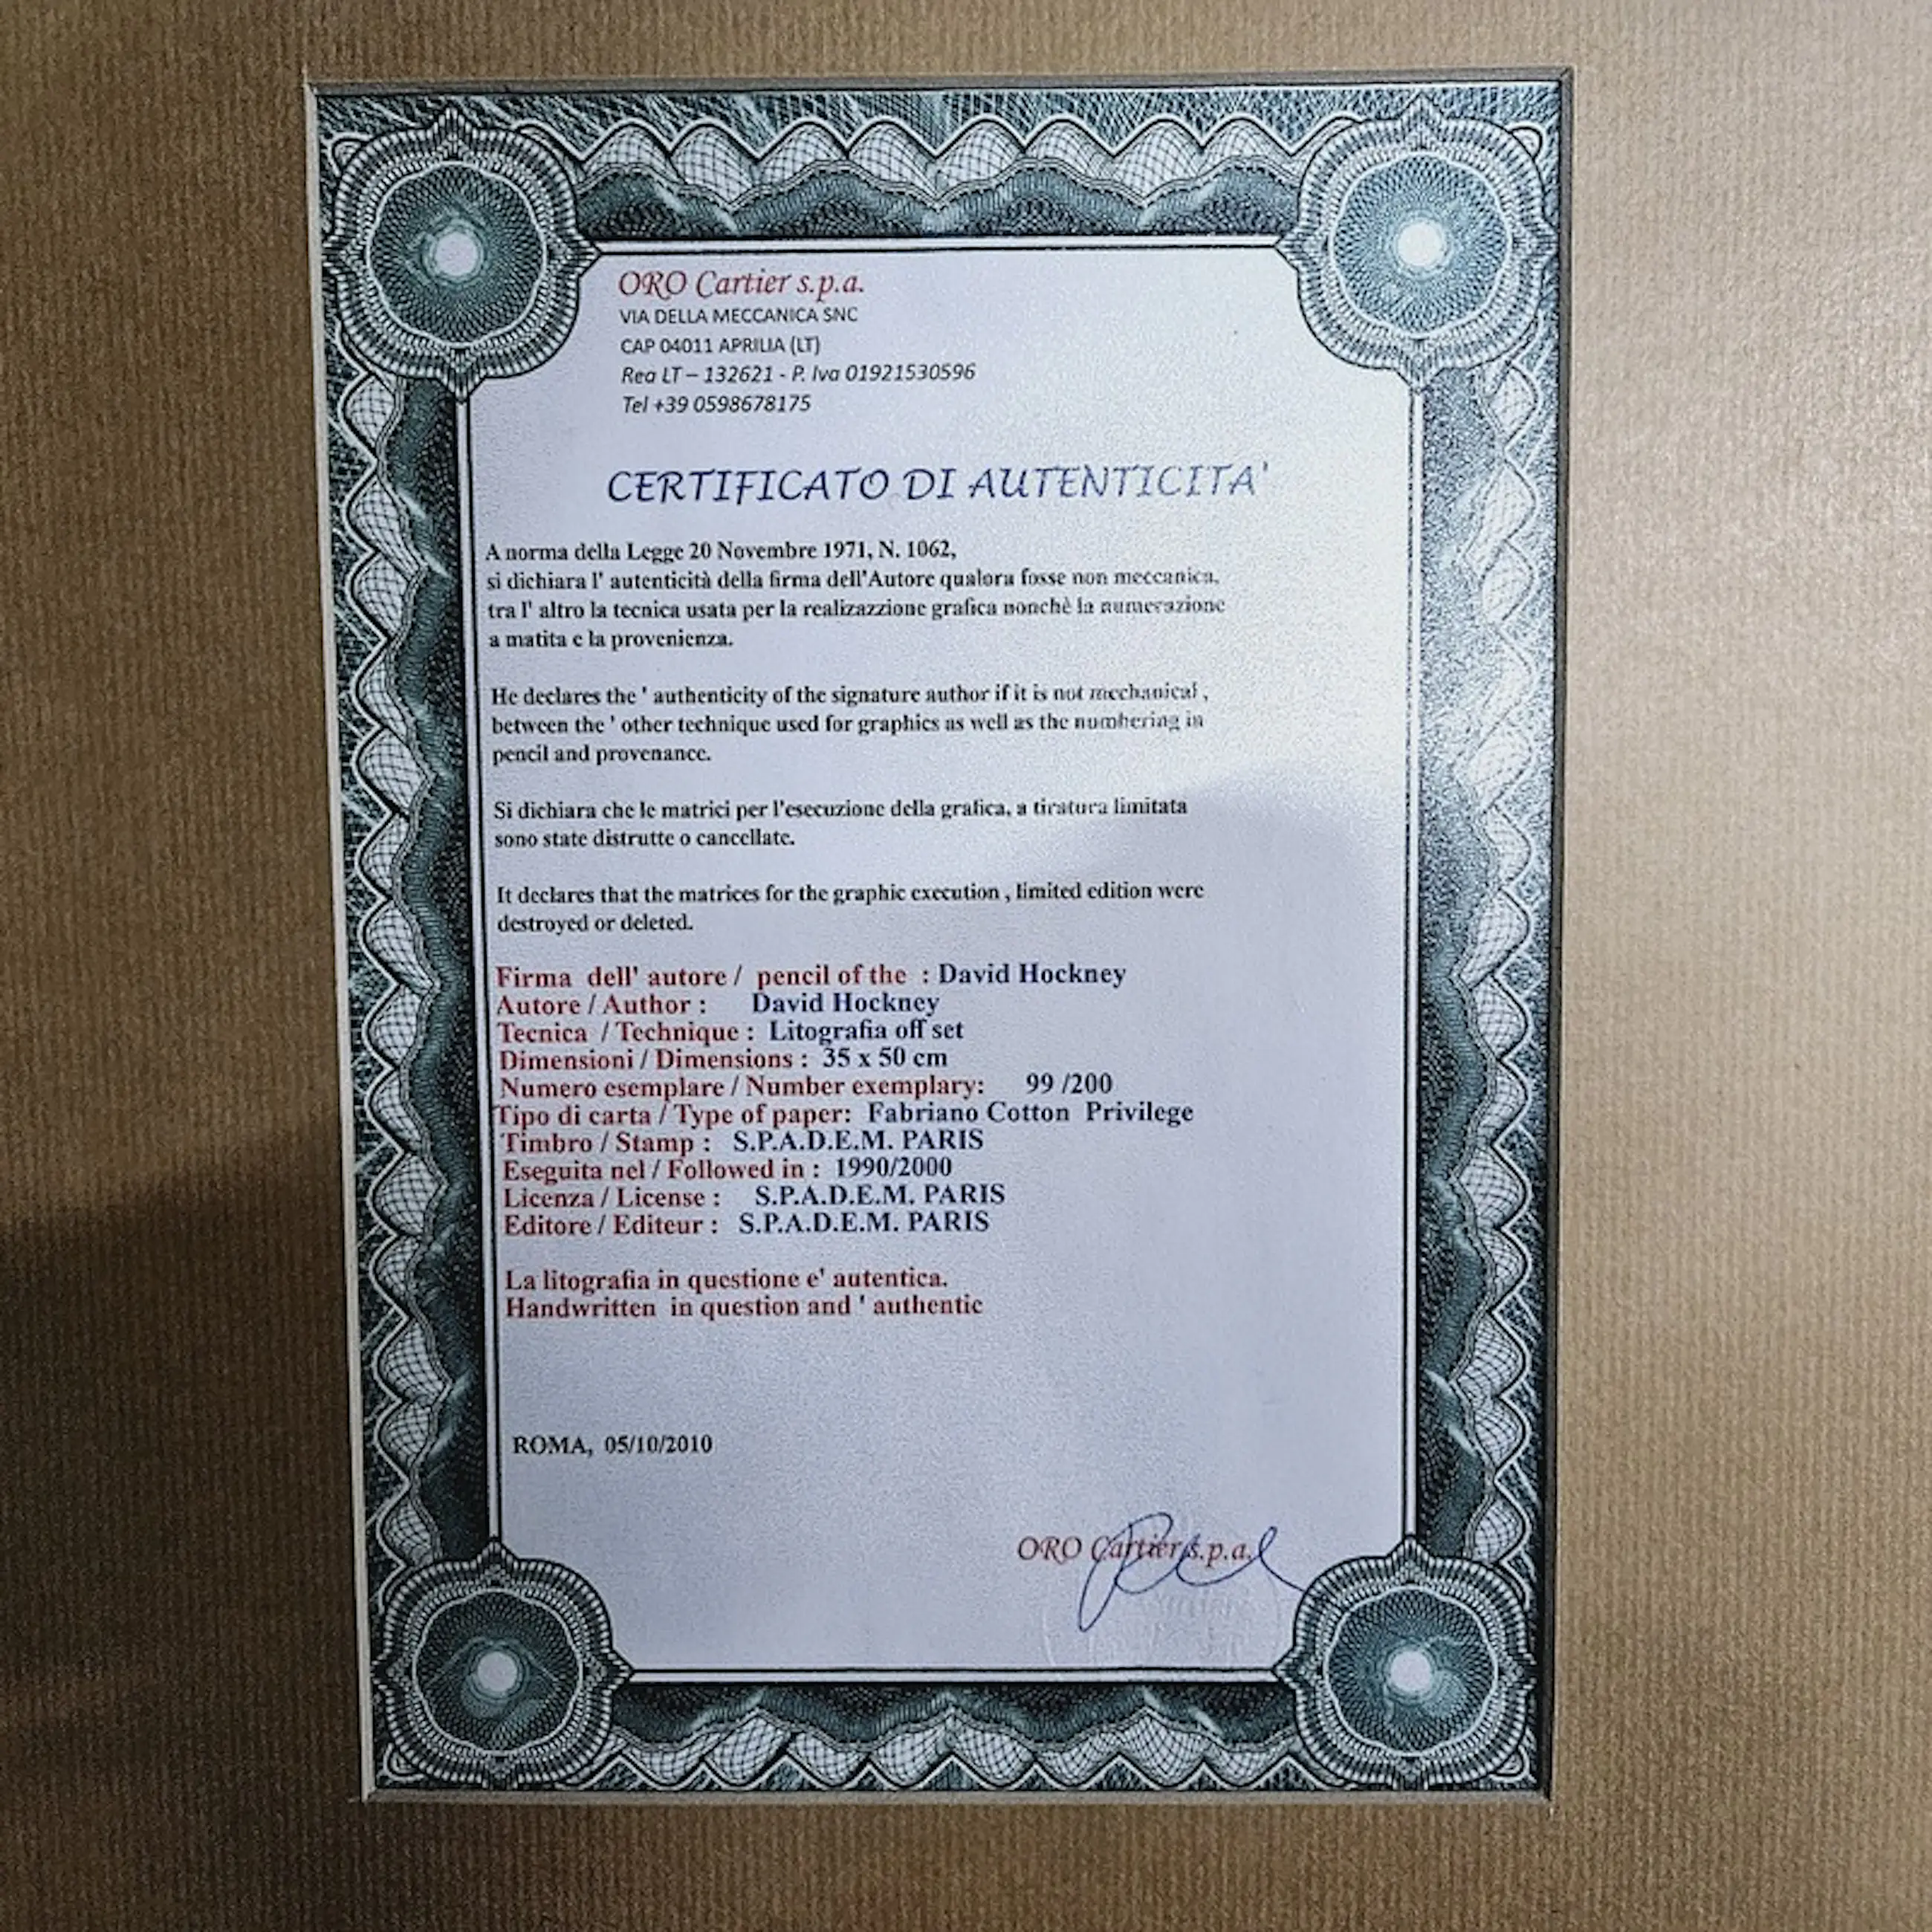 ORO Cartier s.p.a.
VIA DELLA MECCANICA SNC
CAP 04011 APRILIA (LT)
Rea LT – 132621 - P. Iva 01921530596
Tel +39 0598678175
CERTIFICATO DI AUTENTICITA'
A norma della Legge 20 Novembre 1971, N. 1062,
si dichiara l' autenticità della firma dell'Autore qualora fosse non meccanica,
tra l' altro la tecnica usata per la realizazzione grafica nonchè la numerazione
a matita e la provenienza.
He declares the ' authenticity of the signature author if it is not mechanical ,
between the ' other technique used for graphics as well as the numbering in
pencil and provenance.
Si dichiara che le matrici per l'esecuzione della grafica, a tiratura limitata
sono state distrutte o cancellate.
It declares that the matrices for the graphic execution , limited edition were
destroyed or deleted.
Firma dell' autore / pencil of the : David Hockney
Autore / Author : David Hockney
Tecnica / Technique : Litografia off set
Dimensioni / Dimensions : 35 x 50 cm
Numero esemplare / Number exemplary: 99 /200
Tipo di carta / Type of paper: Fabriano Cotton Privilege
Timbro / Stamp : S.P.A.D.E.M. PARIS
Eseguita nel / Followed in : 1990/2000
Licenza / License : S.P.A.D.E.M. PARIS
Editore / Editeur : S.P.A.D.E.M. PARIS
La litografia in questione e' autentica.
Handwritten in question and ' authentic
ROMA, 05/10/2010
ORO Cartier s.p.a.